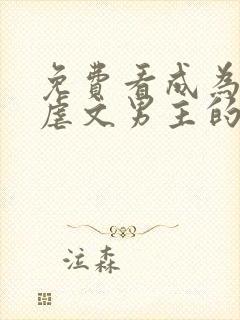 免费看成为
虐文男主的
泣森